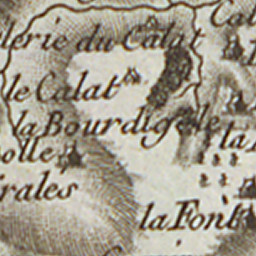 Cal
lerie du Calat
le Calat
la Bourdigelle
la
olle
rales
la Font